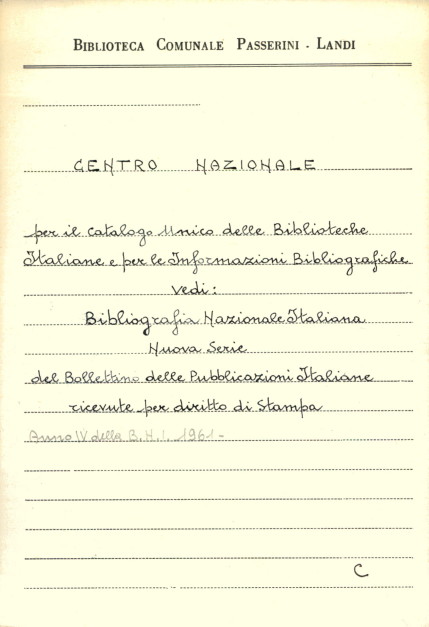 BIBLIOTECA COMUNALE PASSERINI - LANDI
CENTRO NAZIONALE
per il Catalogo Unico delle Biblioteche
Italiane e per le Informazioni Bibliografiche
vedi:
Bibliografia Nazionale Italiana
Nuova Serie
del Bollettino delle Pubblicazioni Italiane
ricevute per diritto di Stampa
Anno IV della B.N.I. 1961-
C